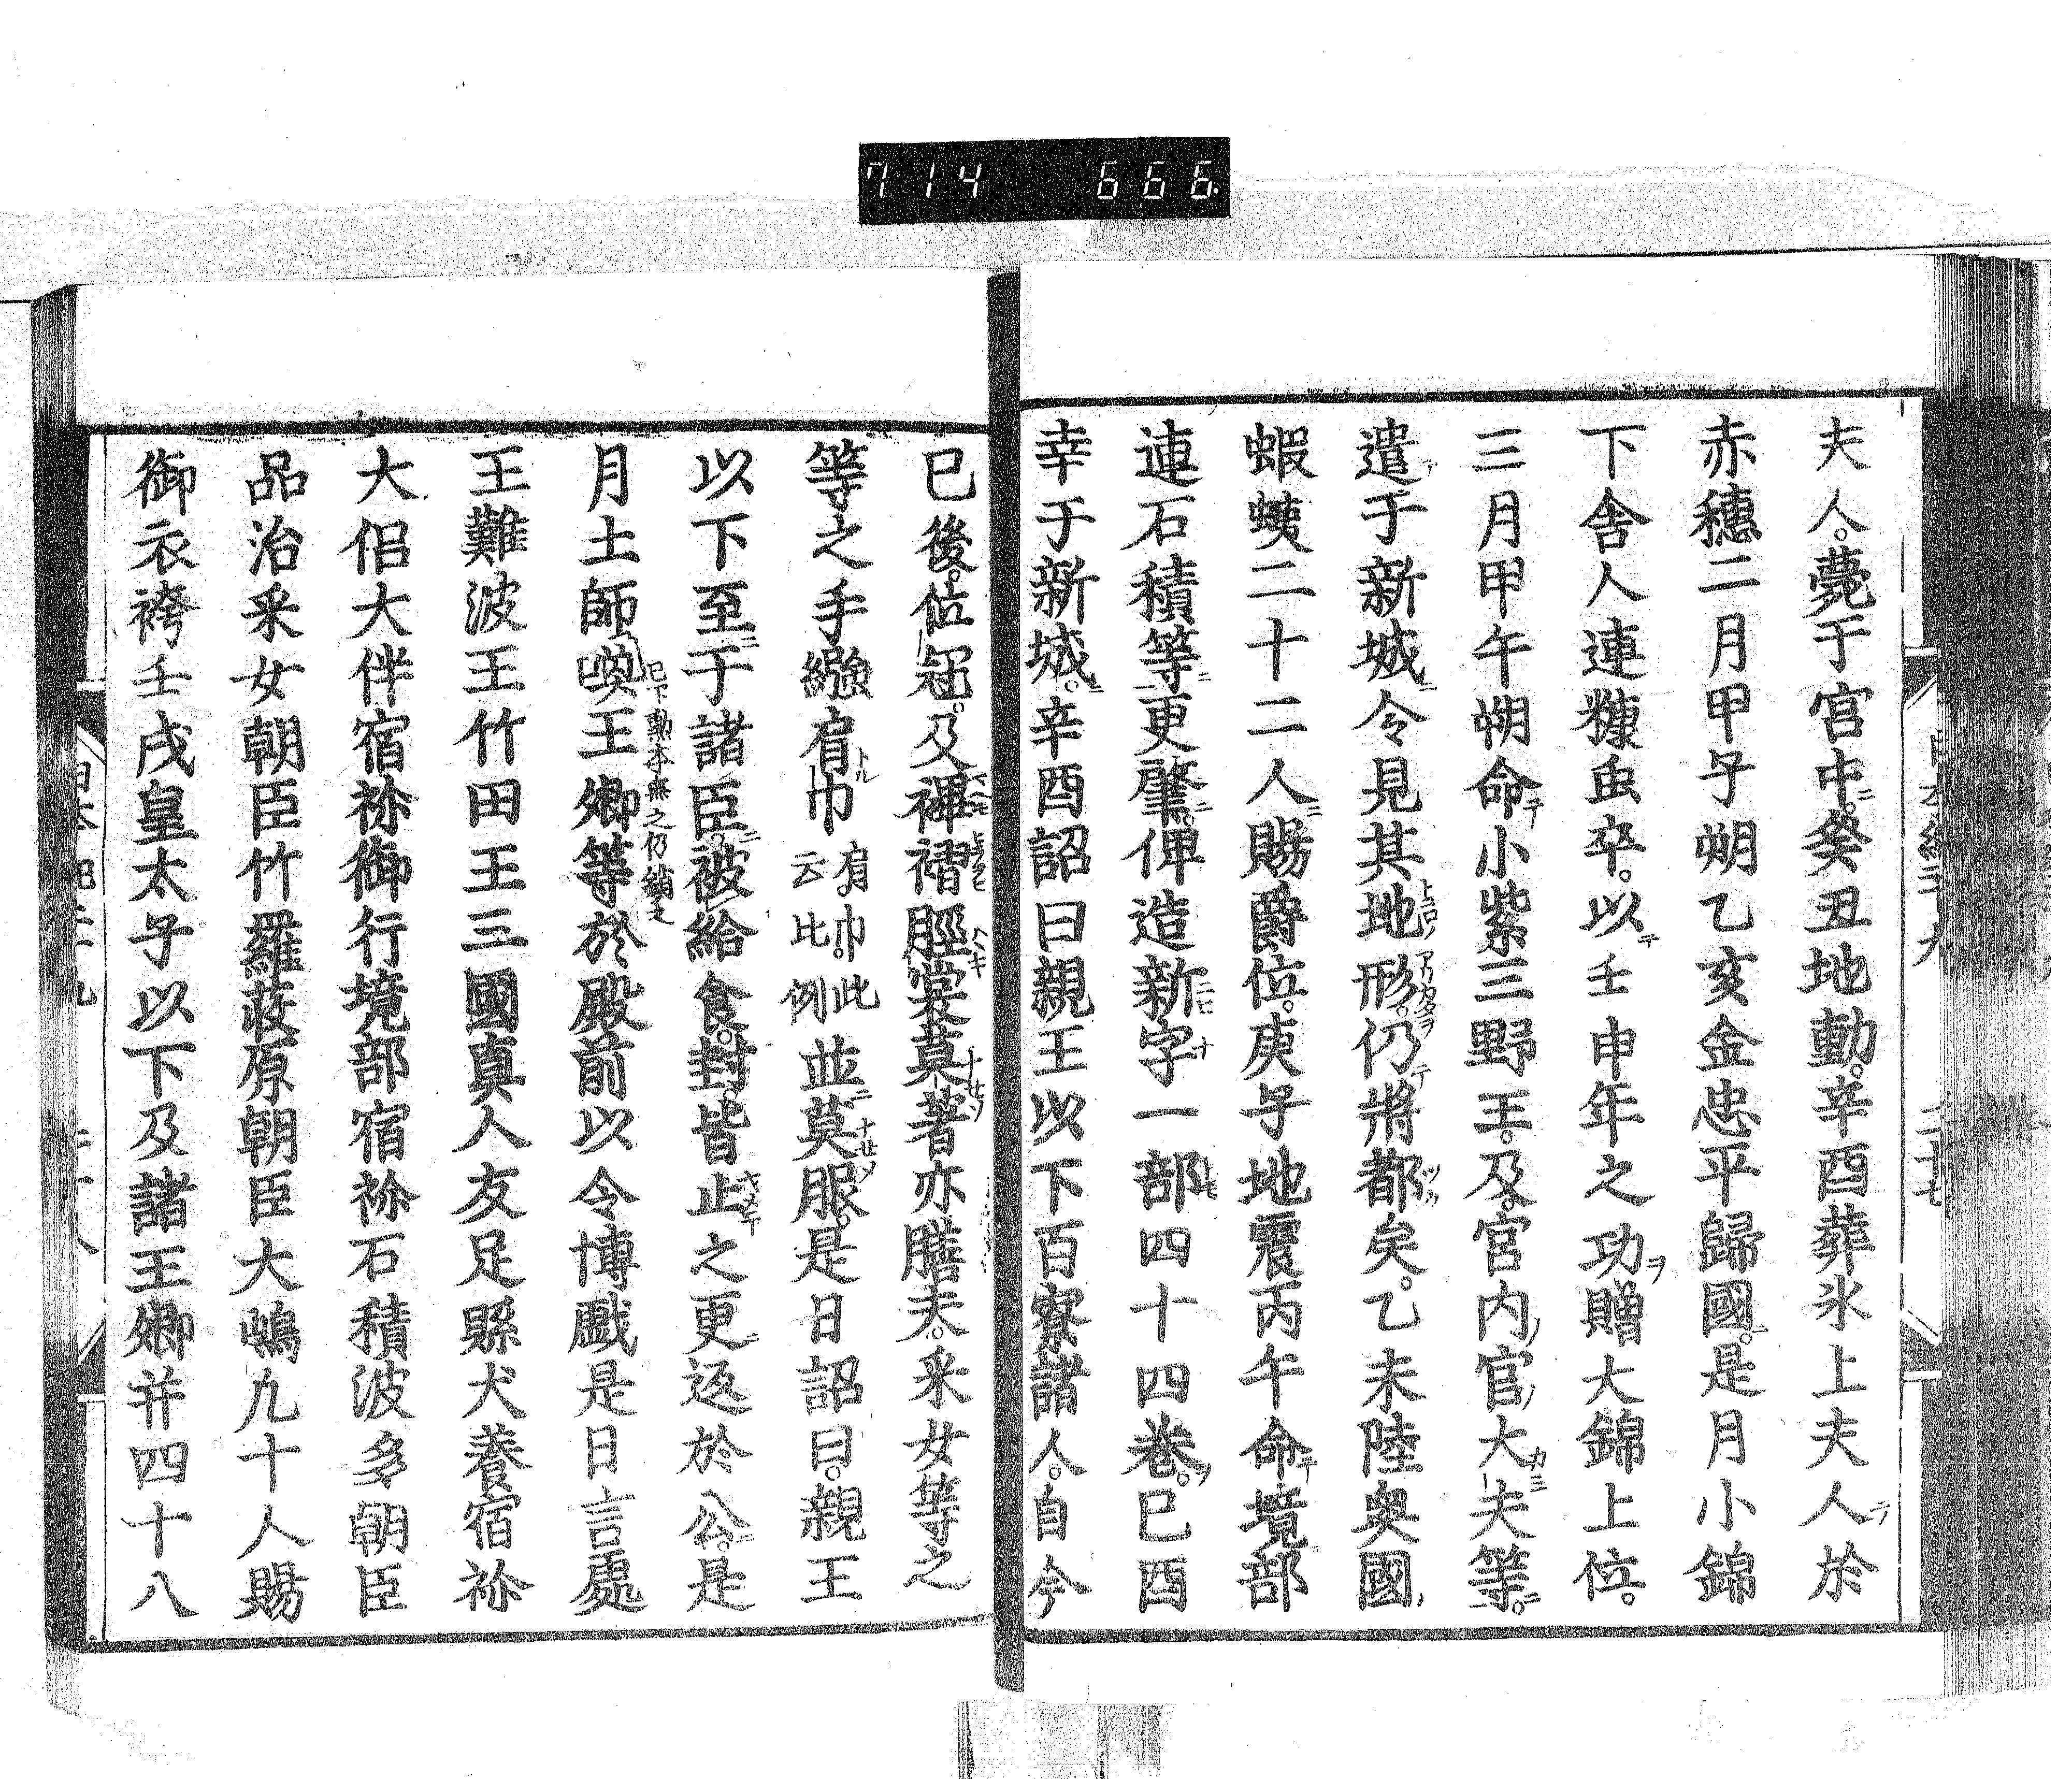 714 666
夫人薨于宮中癸丑地動辛酉葬氷上夫人於
赤穗二月甲子朔乙亥金忠平歸國是月小錦
下舎人連糠虫卒以壬申年之功贈大錦上位
三月甲午朔命小紫三野王及宮内官大夫等
遣于新城令見其地形仍將都矣乙未陸奥國
蝦蛦二十二人賜爵位庚子地震丙午命境部
連石積等更肇俾造新字一部四十四巻已酉
幸于新城辛酉詔曰親王以下百寮諸人自今
已後位冠及襅褶脛裳莫著亦膳夫采女等之
等之手繦肩巾肩巾此云比例並莫服是日詔曰親王
以下至于諸臣被給食封皆止之更返於公是
月土師
已下勳本無之仍
王卿等於殿前以令博戯是日言處
王難波王竹田王三國真人友足縣犬養宿祢
大侶大伴宿祢御行境部宿祢石積波多朝臣
品治采女朝臣竹羅蔱原朝臣大嶋九十人賜
御衣袴壬戌皇太子以下及諸王卿并四十八